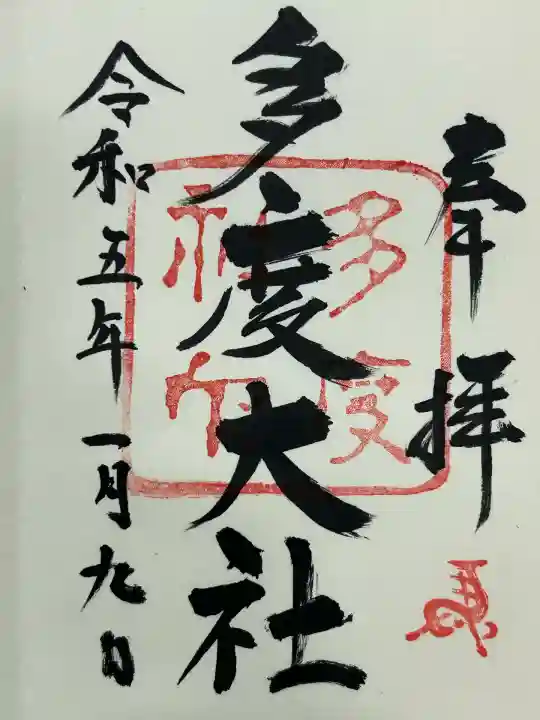 奉拝
多度大社
令和五年一月九日
多度
神印